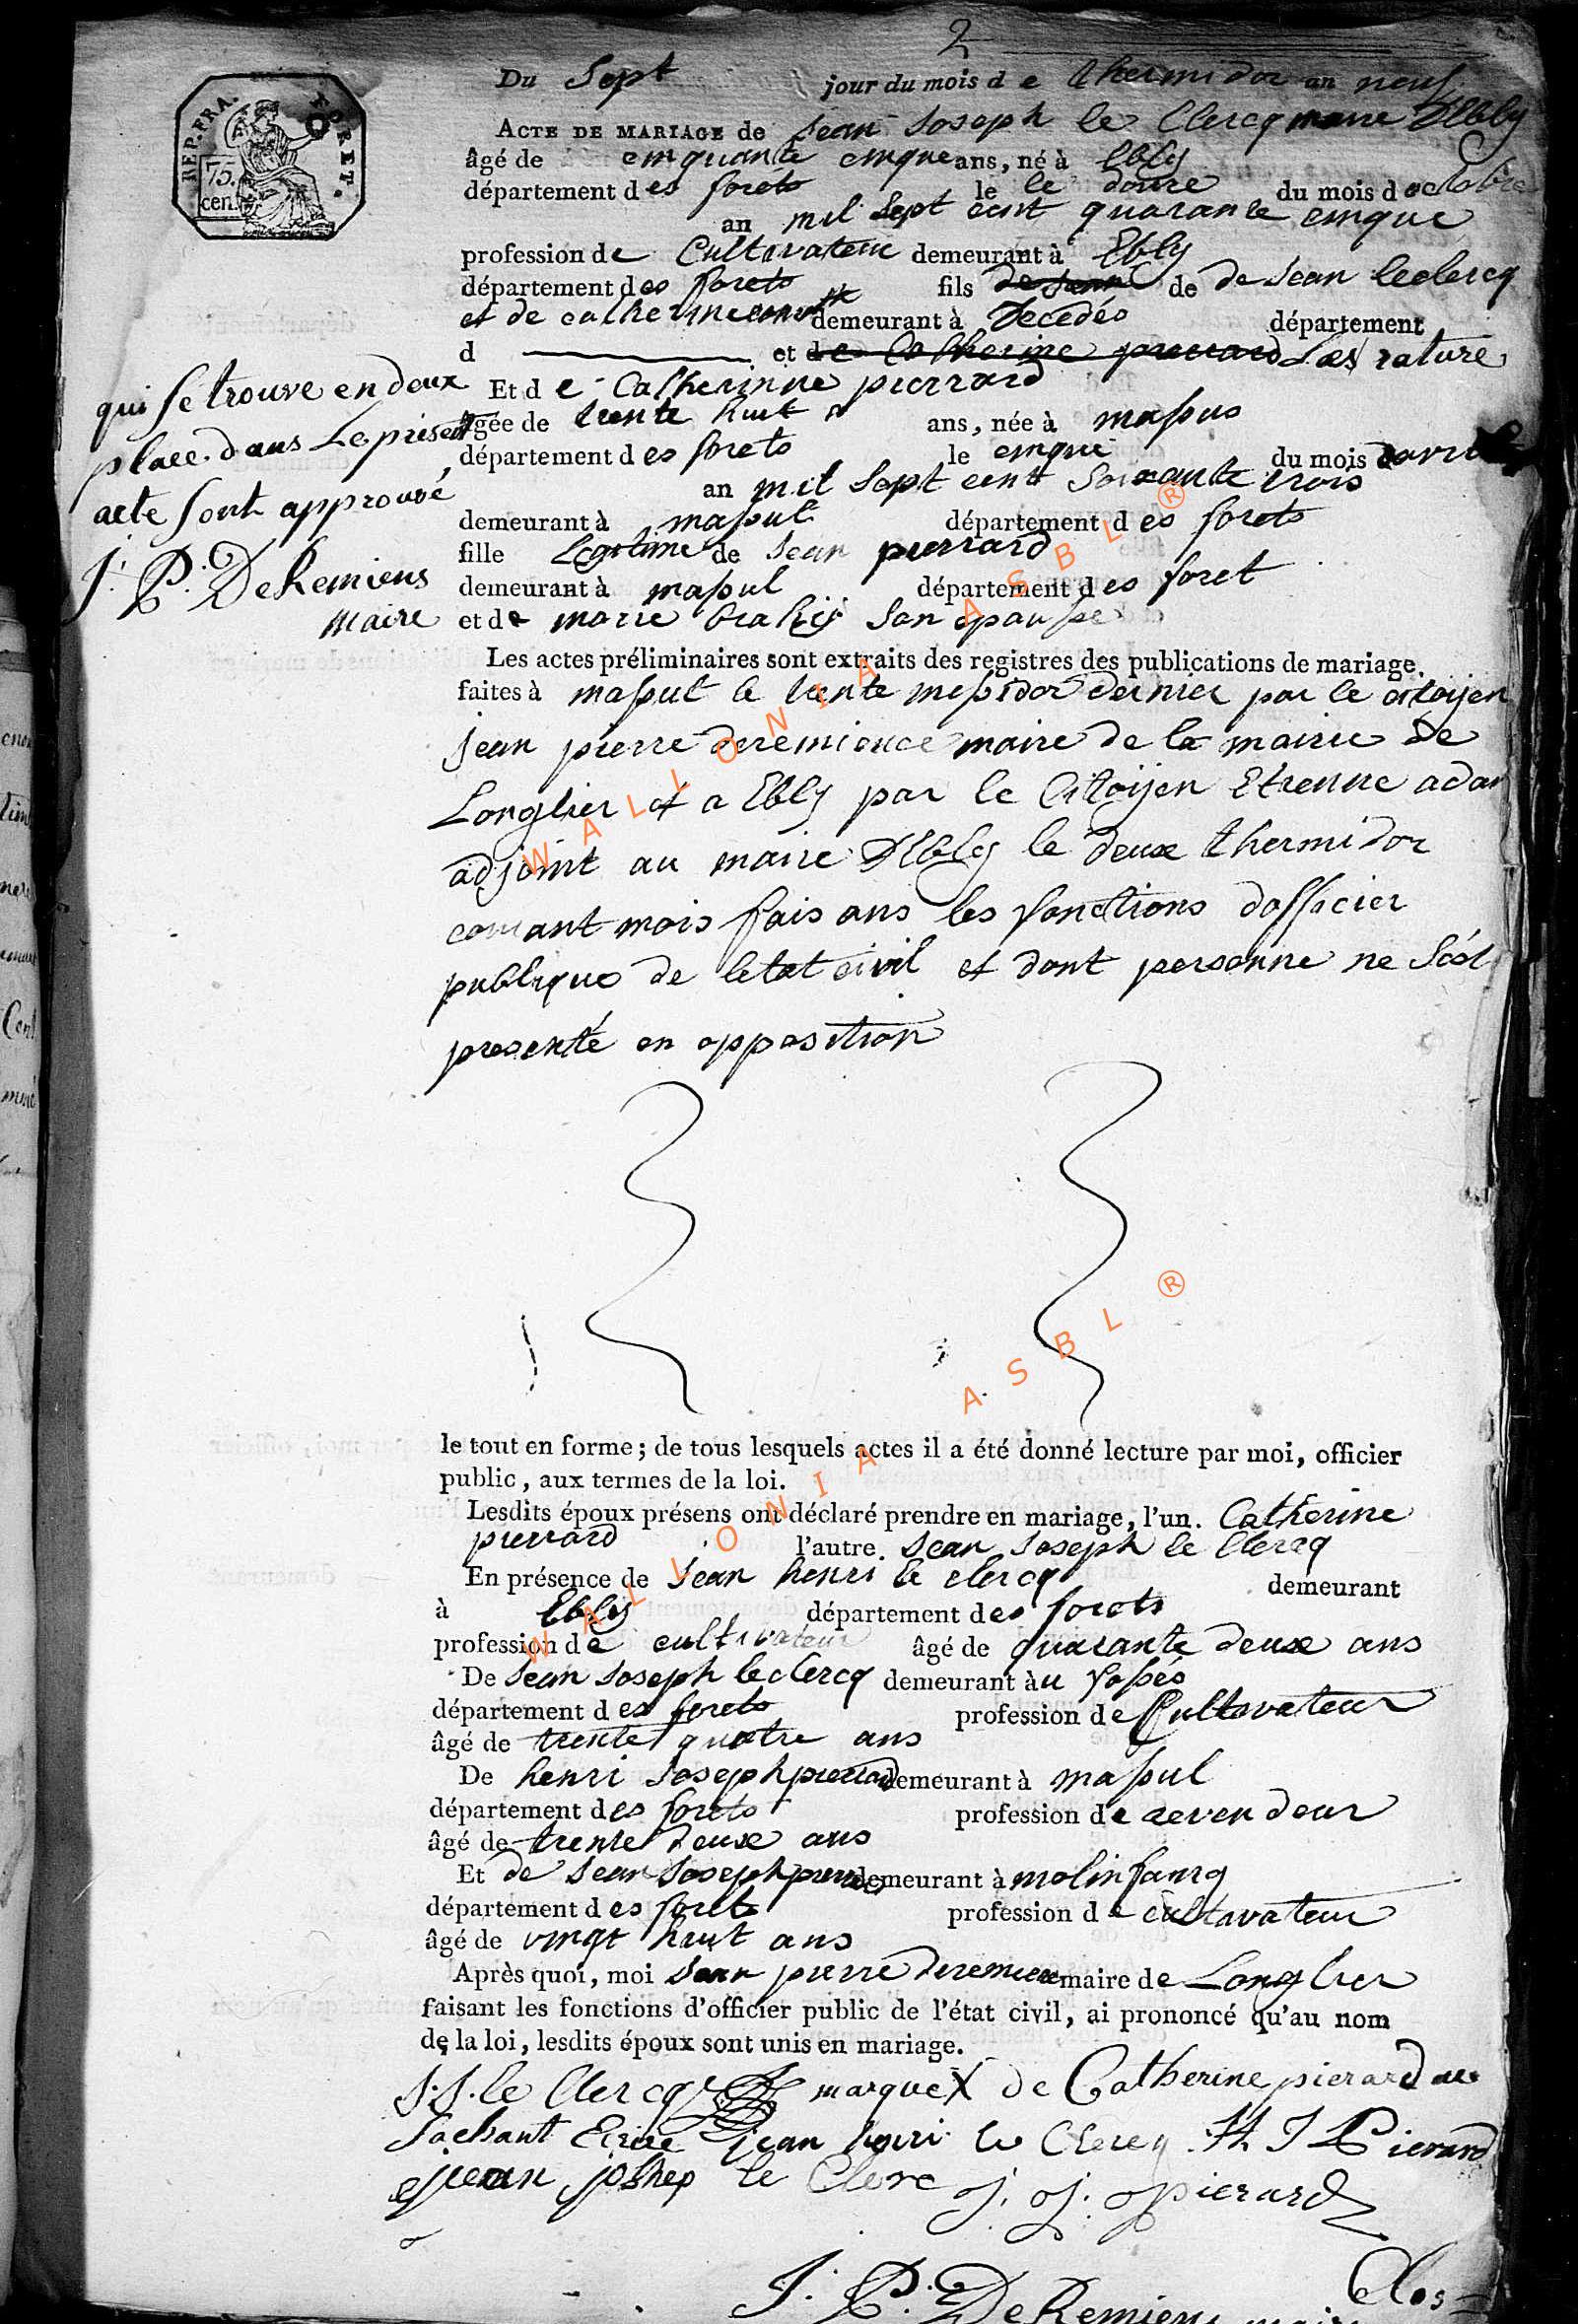 2
REP. FRA. FORET.
75.
cen.
Du Sept jour du mois de thermidor an neuf
ACTE DE MARIAGE de jean Joseph le Clercq maire d'Ebly
âgé de cinquante cinque ans, né à Ebly
département des forets le le douze du mois d octobre
an mil Sept cent quarante cinque
profession de Cultivateur demeurant à Ebly
département des forets fils de de de Jean leclercq
et de catherine demeurant à Decedés département
d et de Catherine pierrard Les rature
qui se trouve en deux
place dans Le present
acte sont approuvé
J. P. DeRemiens
Maire
Et de Catherinne pierrard
âgée de trente huit ans, née à maſsus
département des forets le cinque du mois davril
an mil Sept cent Soixante trois
demeurant à maſsul département des forets
fille Legitime de Jean pierrard
demeurant à maſsul département des foret
et de marie Son epouſse
Les actes préliminaires sont extraits des registres des publications de mariage.
faites à maſsul le trente meſsidor dernier par le citoijen
jean pierre deremience maire de la mairie de
Longlier et a Ebly par le Citoijen Etienne adam
adjoint au maire d'Ebly le deux thermidor
courant mois fais ans les fonctions dofficier
publique de letat civil et dont personne ne s'est
presenté en opposition
le tout en forme ; de tous lesquels actes il a été donné lecture par moi, officier
public, aux termes de la loi.
Lesdits époux présens ont déclaré prendre en mariage, l'un. Catherine
pierrard l'autre. Jean Joseph le Clercq
En présence de Jean henri le clercq demeurant
à Ebly département des forets
profession de cultivateur âgé de quarante deux ans
De Jean Joseph leclercq demeurant àu foſsés
département des forets profession de Cultivateur
âgé de trente quatre ans
De henri Joseph pierrard demeurant à maſsul
département des forets profession de revendeur
âgé de trente deux ans
Et de Jean Joseph pierrard demeurant à molinfaing
département des forets profession de cultavateur
âgé de vingt huit ans
Après quoi, moi Jean pierre deremience maire de Longlier
faisant les fonctions d'officier public de l'état civil, ai prononcé qu'au nom
de la loi, lesdits époux sont unis en mariage.
J. J. le Clercq marque X de Catherine pierard ne
Sachant Ecrire jean henri le Clercq H J Pierard
jean joshep le Clerc j. j. pierard
J. P. DeRemiens maire
Clos
WALLONIA ASBL ®
WALLONIA ASBL ®